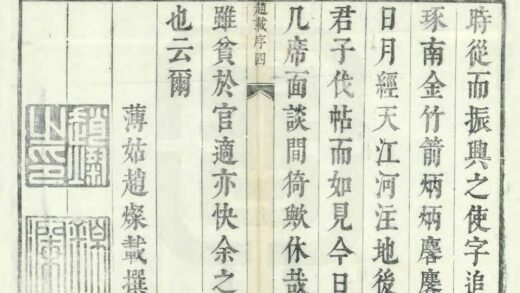 時從而振興之使字追
琢南金竹箭炳炳麐麐
日月經天江河注地後
君子伐帖而如見今日
几席面談間猗歟休哉
趙載序四
雖貧於官適亦快余之
也云爾
薄姑趙燦載撰